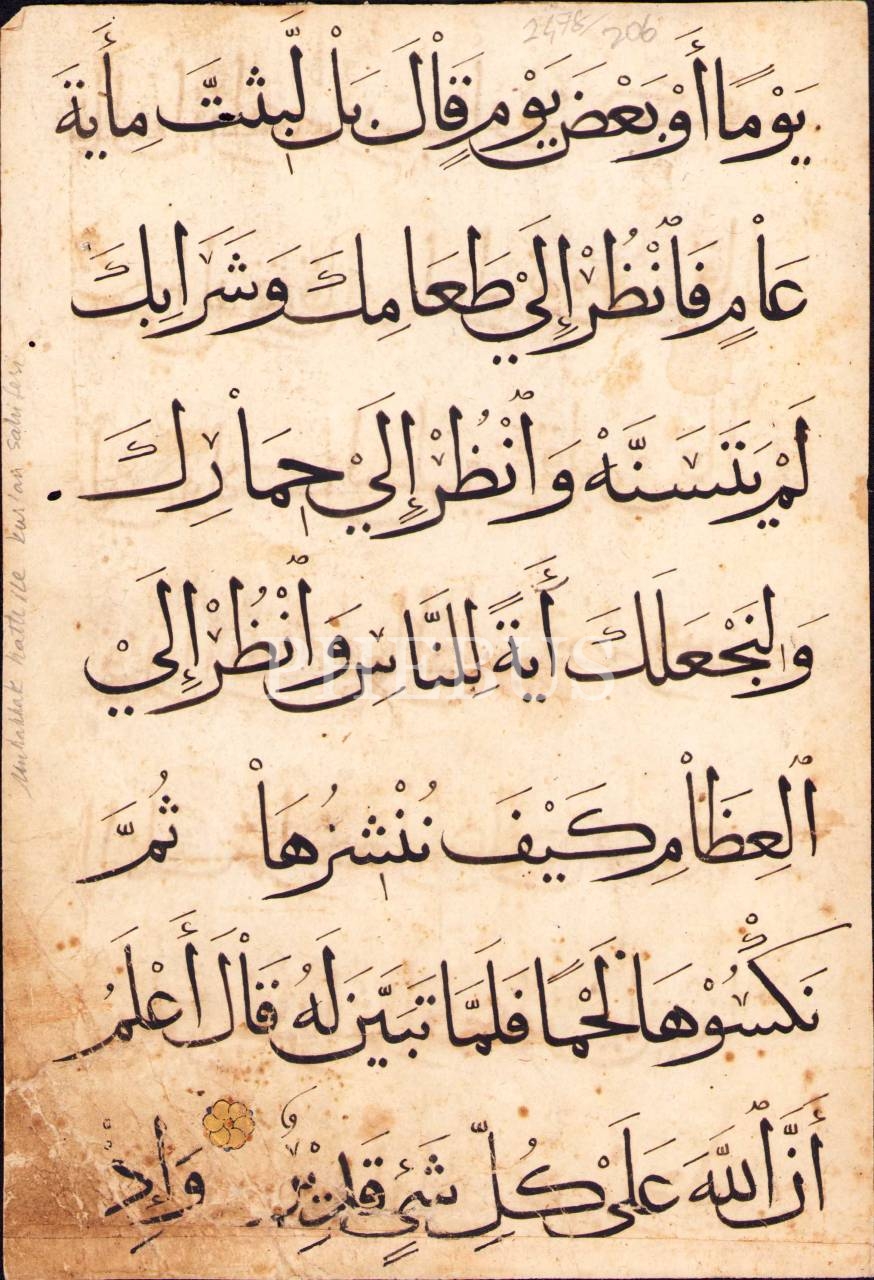 2478/206
يَوْمًا أَوْ بَعْضَ يَوْمٍ قَاْلَ بَلْ لَّبِثْتَّ مِأْيَةَ
عَاْمٍ فَاْنْظُرْ إِلَيْ طَعَامِكَ وَشَرَابِكَ
لَمْ يَتَسَنَّهْ وَاْنْظُرْ إِلَيْ حِمَاْرِكَ
وَلِنَجْعَلَكَ أَيَةً لِلنَّاسِ وَاْنْظُرْ إِلَيْ
اْلْعِظَاْمِ كَيْفَ نُنْشِزُهَاْ ثُمَّ
نَكْسُوْهَا لَحْمًا فَلَمَّا تَبَيَّنَ لَهُ قَاْلَ أَعْلَمُ
أَنَّ اللَّهَ عَلَىْ كُلِّ شَيْءٍ قَدِيْرٌ وَإِذْ
Muhakkak hattı ile kur'an sahifesi
THEPUS